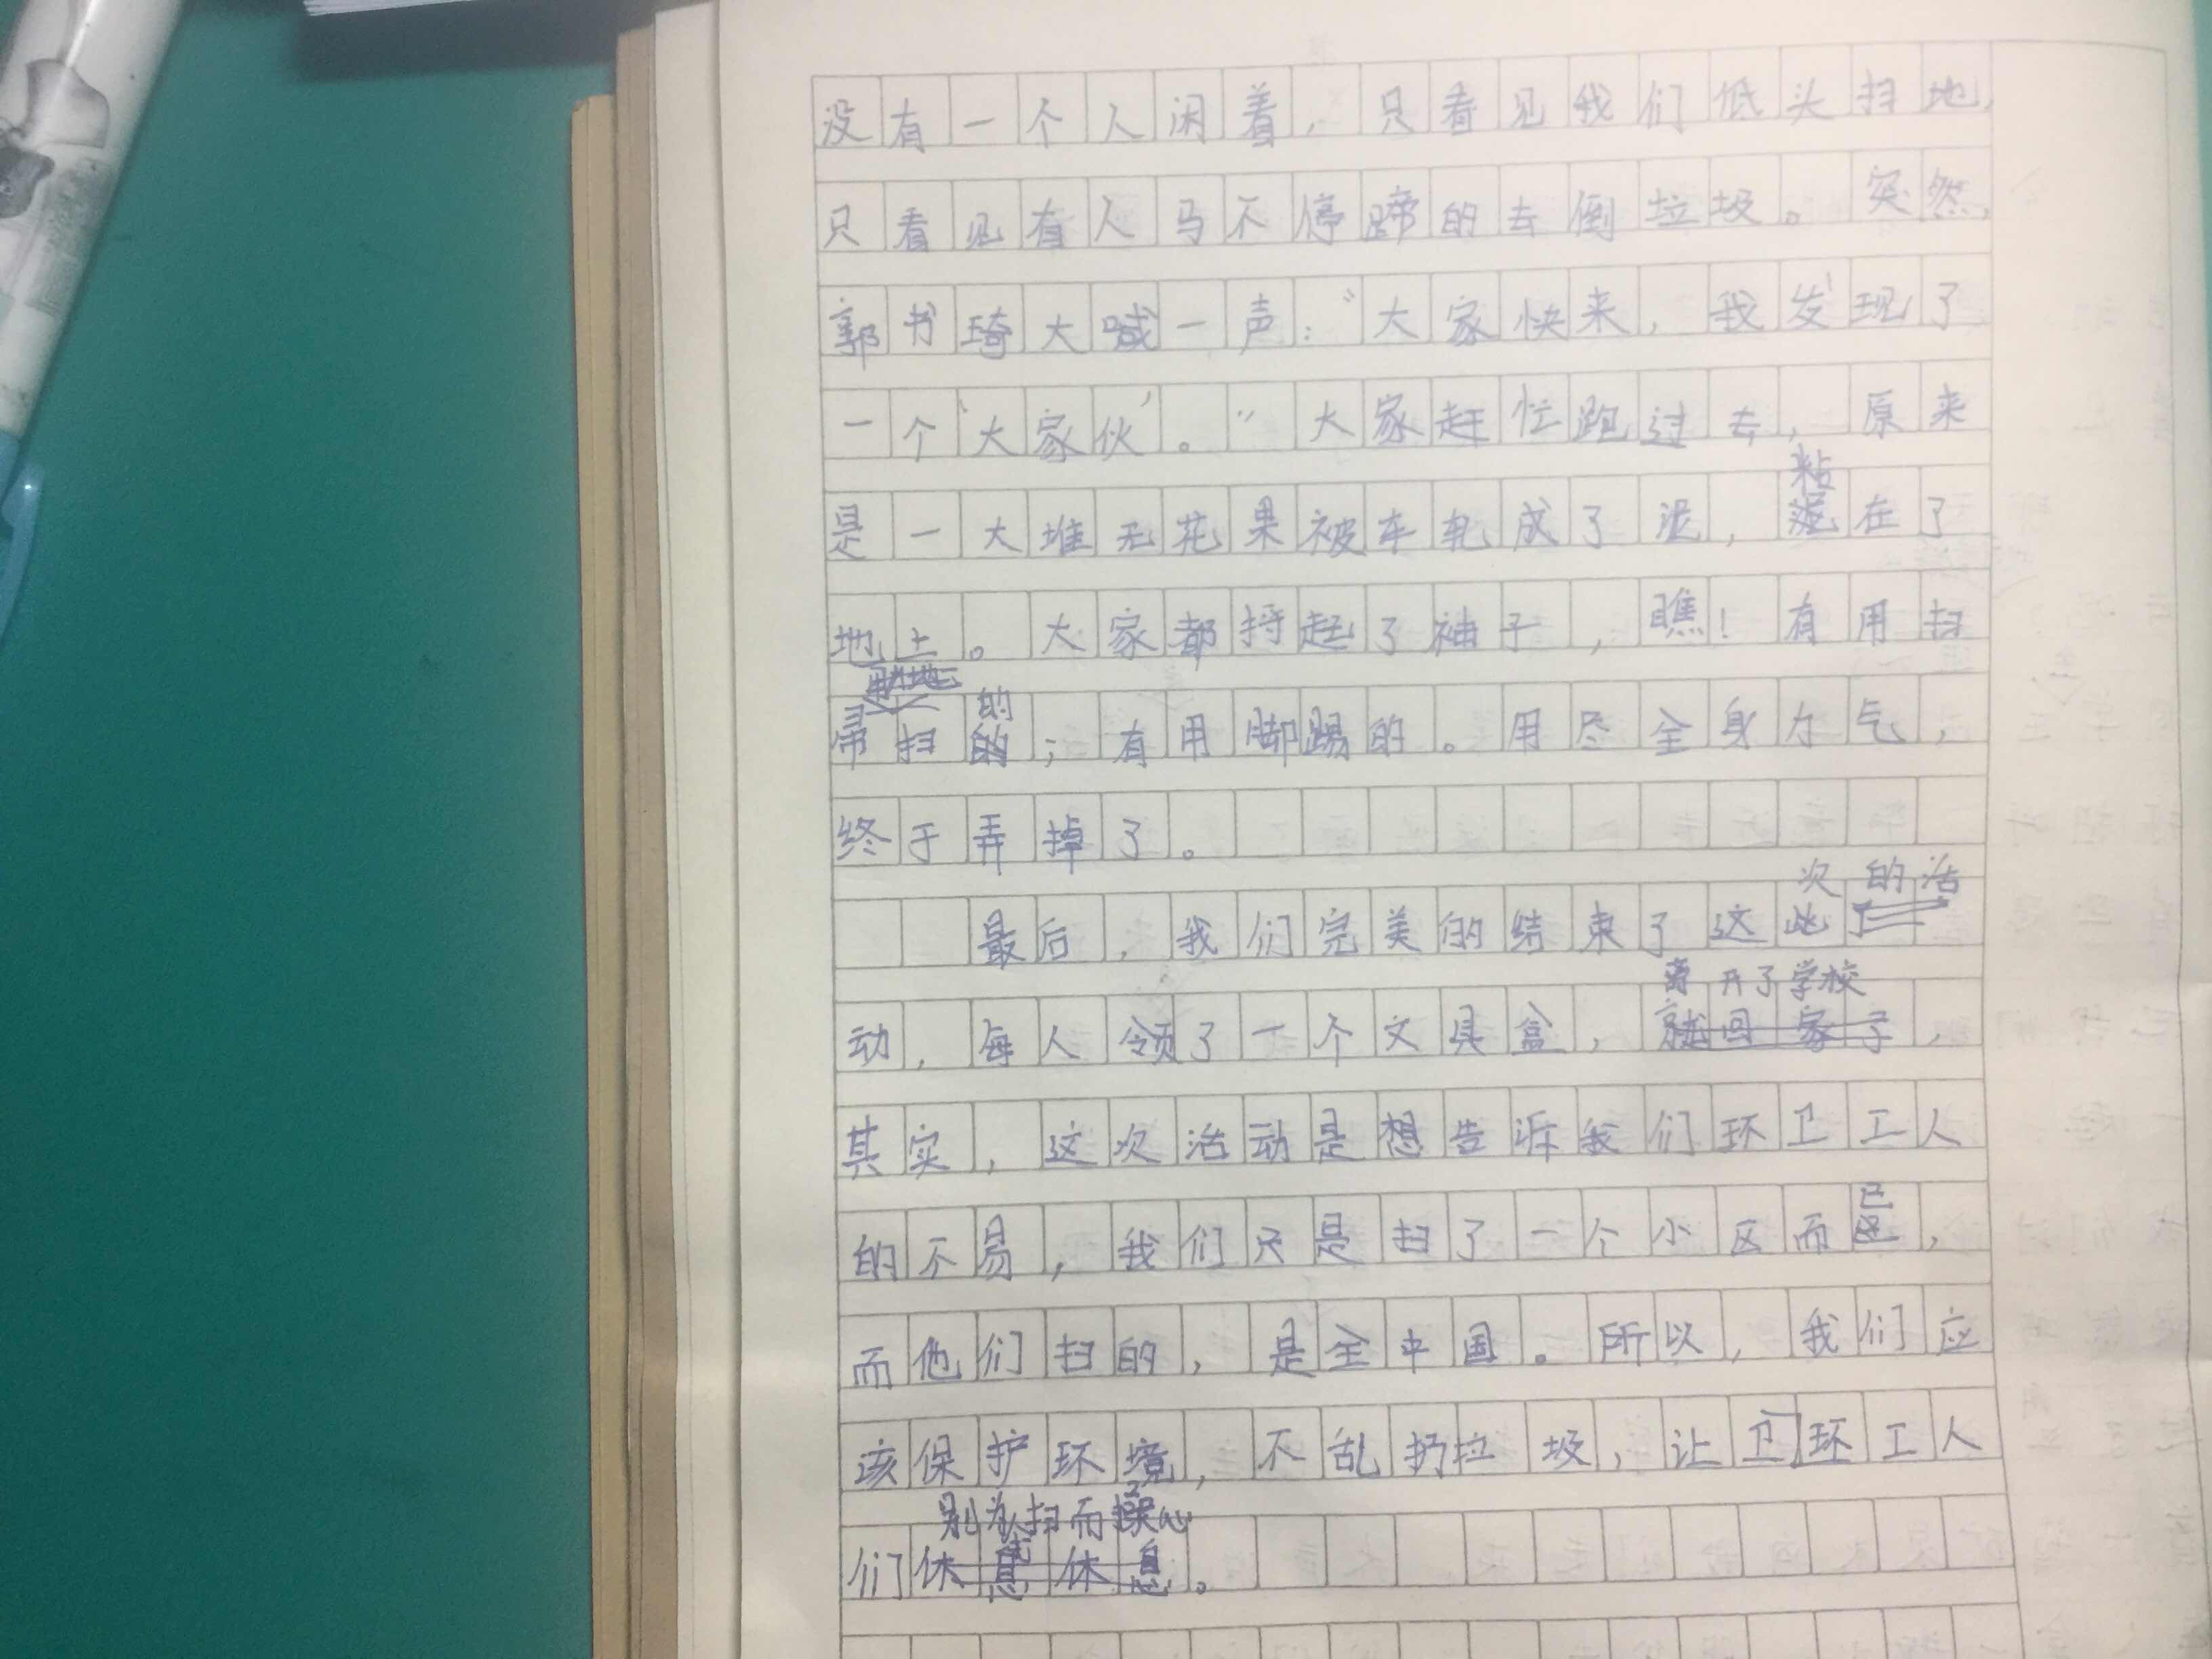 没有一个人闲着，只看见我们低头扫地，
只看见有人马不停蹄的去倒垃圾。突然，
郭书琦大喊一声：“大家快来，我发现了
一个‘大家伙’。”大家赶忙跑过去，原来
粘
是一大堆无花果被车轧成了泥，泥在了
地上。大家都捋起了袖子，瞧！有用扫
的
帚扫的；有用脚踢的。用尽全身力气，
终于弄掉了。
次的活
最后，我们完美的结束了这此了
离开了学校
动，每人领了一个文具盒，就回家了，
其实，这次活动是想告诉我们环卫工人
已
的不易，我们只是扫了一个小区而已，
而他们扫的，是全中国。所以，我们应
该保护环境，不乱扔垃圾，让卫环工人
别为扫而操心
们休息休息。